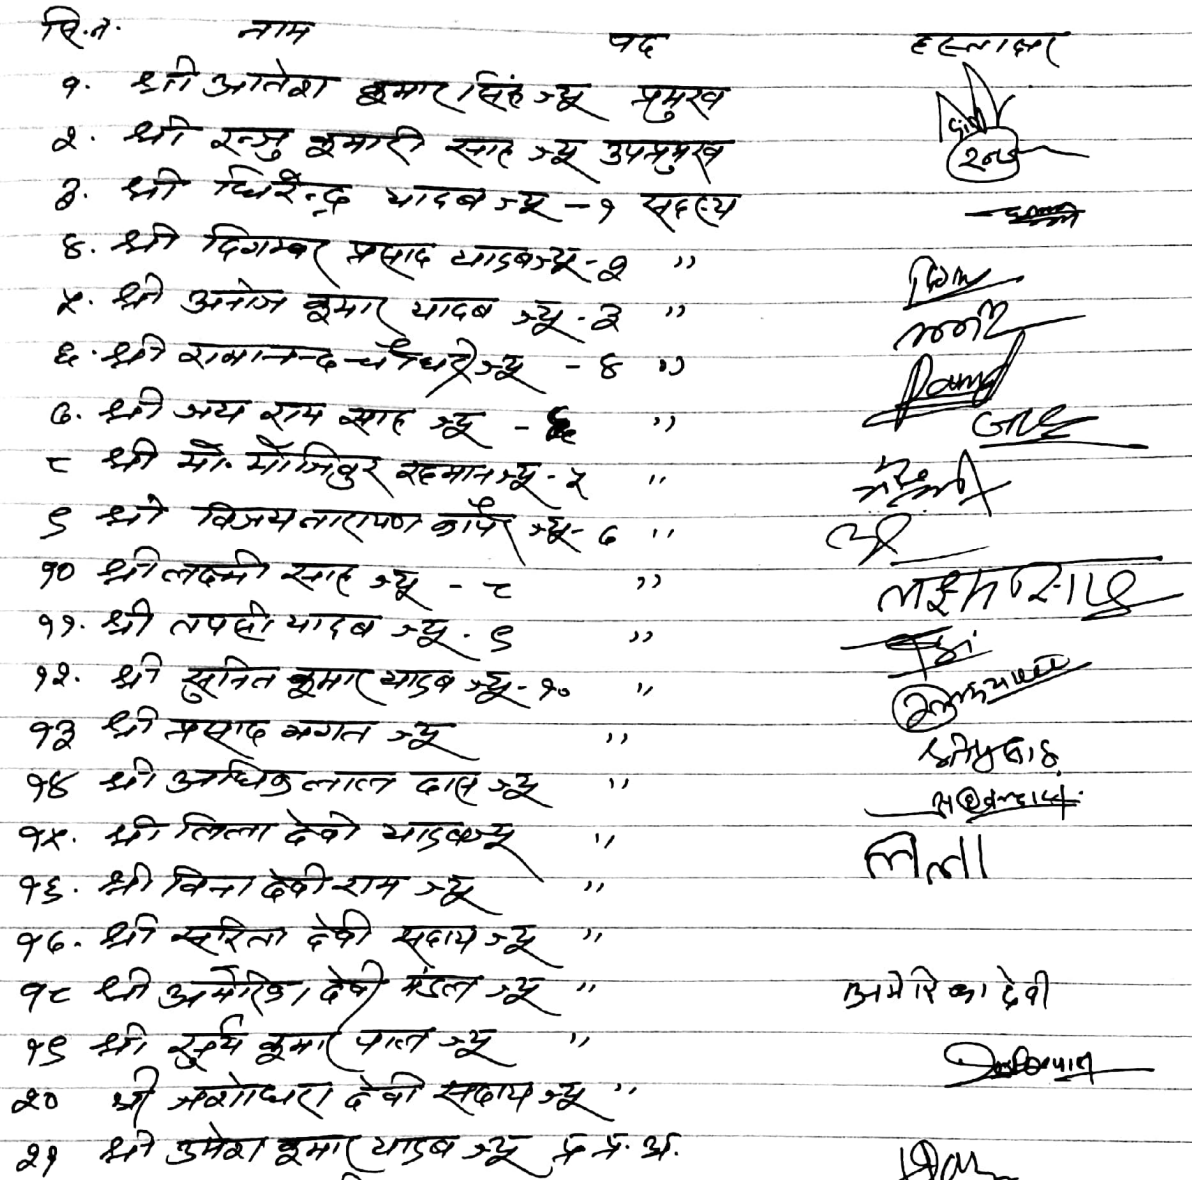 सि.न. नाम पद हस्ताक्षर
१. श्री आतेश कुमार सिंह ज्यू प्रमुख
२. श्री रन्जु कुमारी साह ज्यू उपप्रमुख
३. श्री धिरेन्द्र यादब ज्यू - १ सदस्य
४. श्री दिगम्बर प्रसाद यादब ज्यू - २ "
५. श्री अनोज कुमार यादब ज्यू - ३ "
६. श्री रामानन्द चौधरी ज्यू - ४ "
७. श्री जय राम साह ज्यू - ६ "
८ श्री मो. मोजिबुर रहमान ज्यू - ५ "
९ श्री विजय नारायण ज्यू - ७ "
१० श्री लक्ष्मी साह ज्यू - ८ "
११. श्री तपसी यादब ज्यू - ९ "
१२. श्री सुनित कुमार यादब ज्यू - १० "
१३ श्री प्रसाद भगत ज्यू "
१४ श्री अधिक लाल दास ज्यू "
१५. श्री लिला देवी यादब ज्यू " लिला
१६. श्री विना देवी राम ज्यू "
१७. श्री सरिता देवी सदाय ज्यू "
१८ श्री अमेरिका देवी मंडल ज्यू " अमेरिका देवी
१९ श्री सुर्य कुमार पाल ज्यू "
२० श्री जशोधरा देवी सदाय ज्यू "
२१ श्री उमेश कुमार यादब ज्यू प्र. प्र. अ.